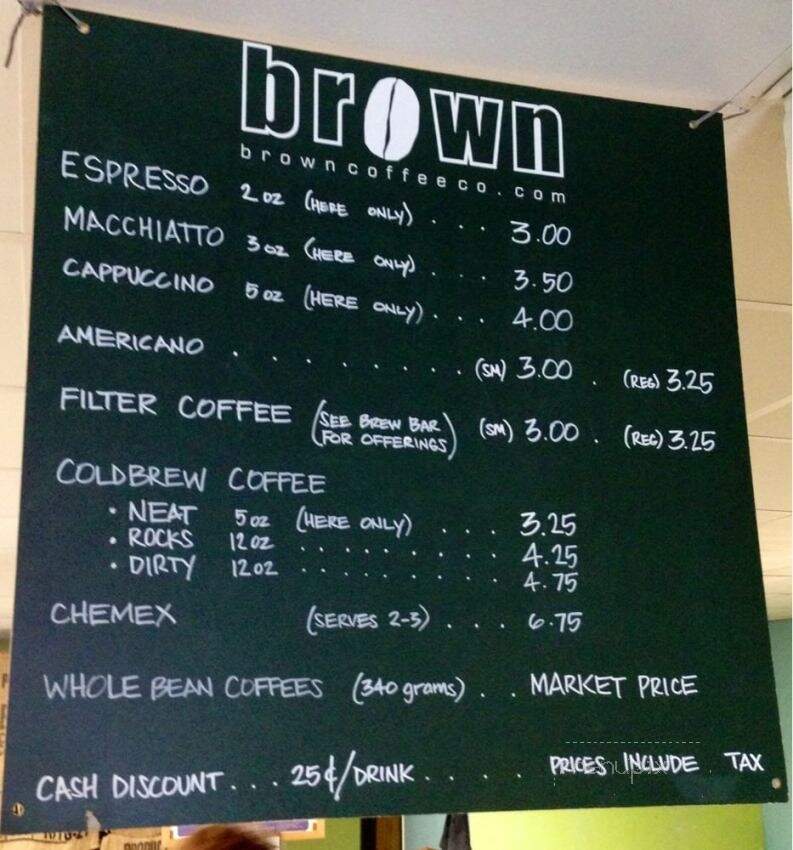 brown
browncoffeeco.com
ESPRESSO 2 oz (HERE ONLY) . . . 3.00
MACCHIATTO 3 oz (HERE ONLY) . . . 3.50
CAPPUCCINO 5 oz (HERE ONLY) . . . 4.00
AMERICANO . . . . . . . . (SM) 3.00 . (REG) 3.25
FILTER COFFEE (SEE BREW BAR FOR OFFERINGS) (SM) 3.00 . (REG) 3.25
COLDBREW COFFEE
• NEAT 5 oz (HERE ONLY) . . . 3.25
• ROCKS 12 oz . . . . . . . . . 4.25
• DIRTY 12 oz . . . . . . . . . 4.75
CHEMEX (SERVES 2-3) . . . 6.75
WHOLE BEAN COFFEES (340 grams) . . MARKET PRICE
CASH DISCOUNT . . . 25¢/DRINK . . . . . PRICES INCLUDE TAX
menupix